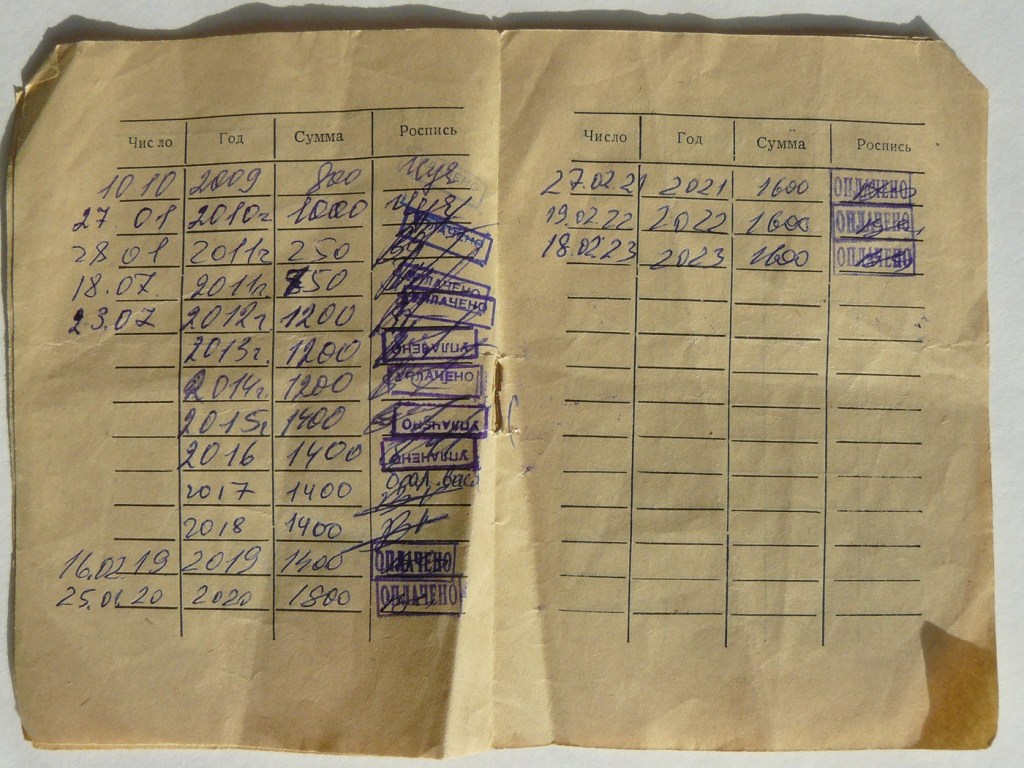 Число Год Сумма Роспись
10.10 2009 800
27.01 2010г 1000 УПЛАЧЕНО
28 01 2011г 250 УПЛАЧЕНО
18.07. 2011г. 750 УПЛАЧЕНО
23.07 2012г 1200 УПЛАЧЕНО
2013г. 1200 УПЛАЧЕНО
2014г. 1200 УПЛАЧЕНО
2015г 1400 УПЛАЧЕНО
2016 1400 УПЛАЧЕНО
2017 1400
2018 1400
16.02.19 2019 1400 ОПЛАЧЕНО
25.01.20 2020 1800 ОПЛАЧЕНО
Число Год Сумма Роспись
27.02.21 2021 1600 ОПЛАЧЕНО
19.02.22 2022 1600 ОПЛАЧЕНО
18.02.23 2023 1600 ОПЛАЧЕНО